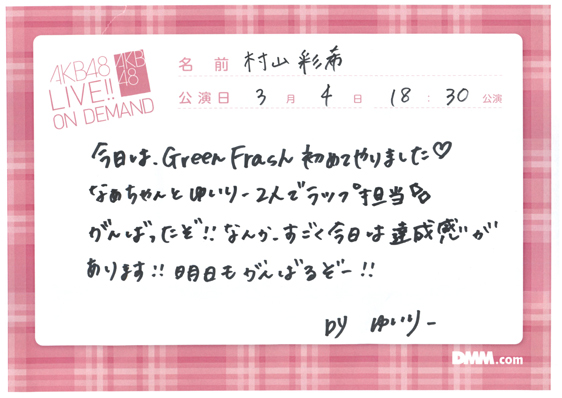 AKB48
LIVE!!
ON DEMAND
AKB
48
名前 村山彩希
公演日 3月4日 18:30公演
今日は、Green Frash 初めてやりました♡
なぁちゃんとゆいりー2人でラップ担当
がんばったぞ!!なんか、すごく今日は達成感が
あります!!明日もがんばるぞー!!
by ゆいりー
DMM.com